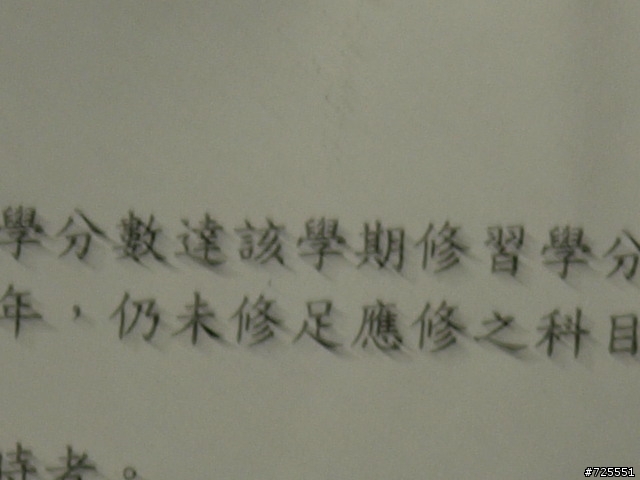 學分數達該學期修習學分
年，仍未修足應修之科目
時者。
#725551